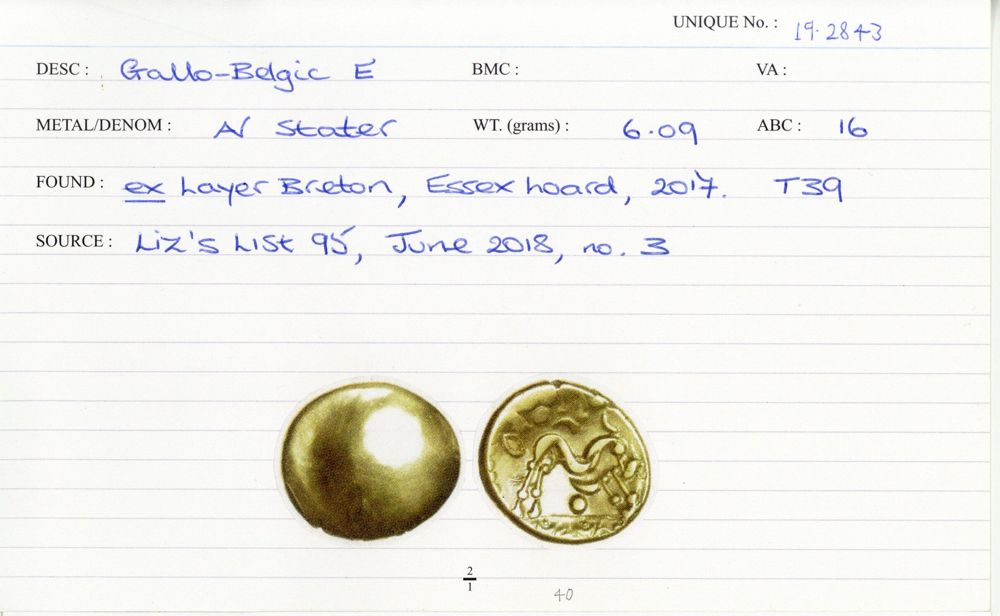 UNIQUE No. : 19.2843
DESC : Gallo-Belgic E BMC : VA :
METAL/DENOM : AV Stater WT. (grams) : 6.09 ABC : 16
FOUND : ex Layer Breton, Essex hoard, 2017. T39
SOURCE : Liz's List 95, June 2018, no. 3
2
1
40